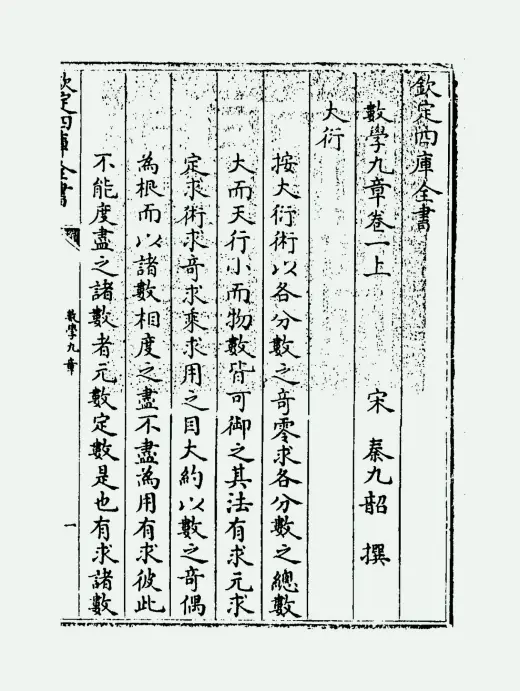 欽定四庫全書
數學九章卷一上
宋 秦九韶 撰
大衍
按大衍術以各分數之奇零求各分數之總數
大而天行小而物數皆可御之其法有求元求
定求術求奇求乘求用之目大約以數之奇偶
為根而以諸數相度之盡不盡為用有求彼此
不能度盡之諸數者元數定數是也有求諸數
欽定四庫全書
數學九章
一